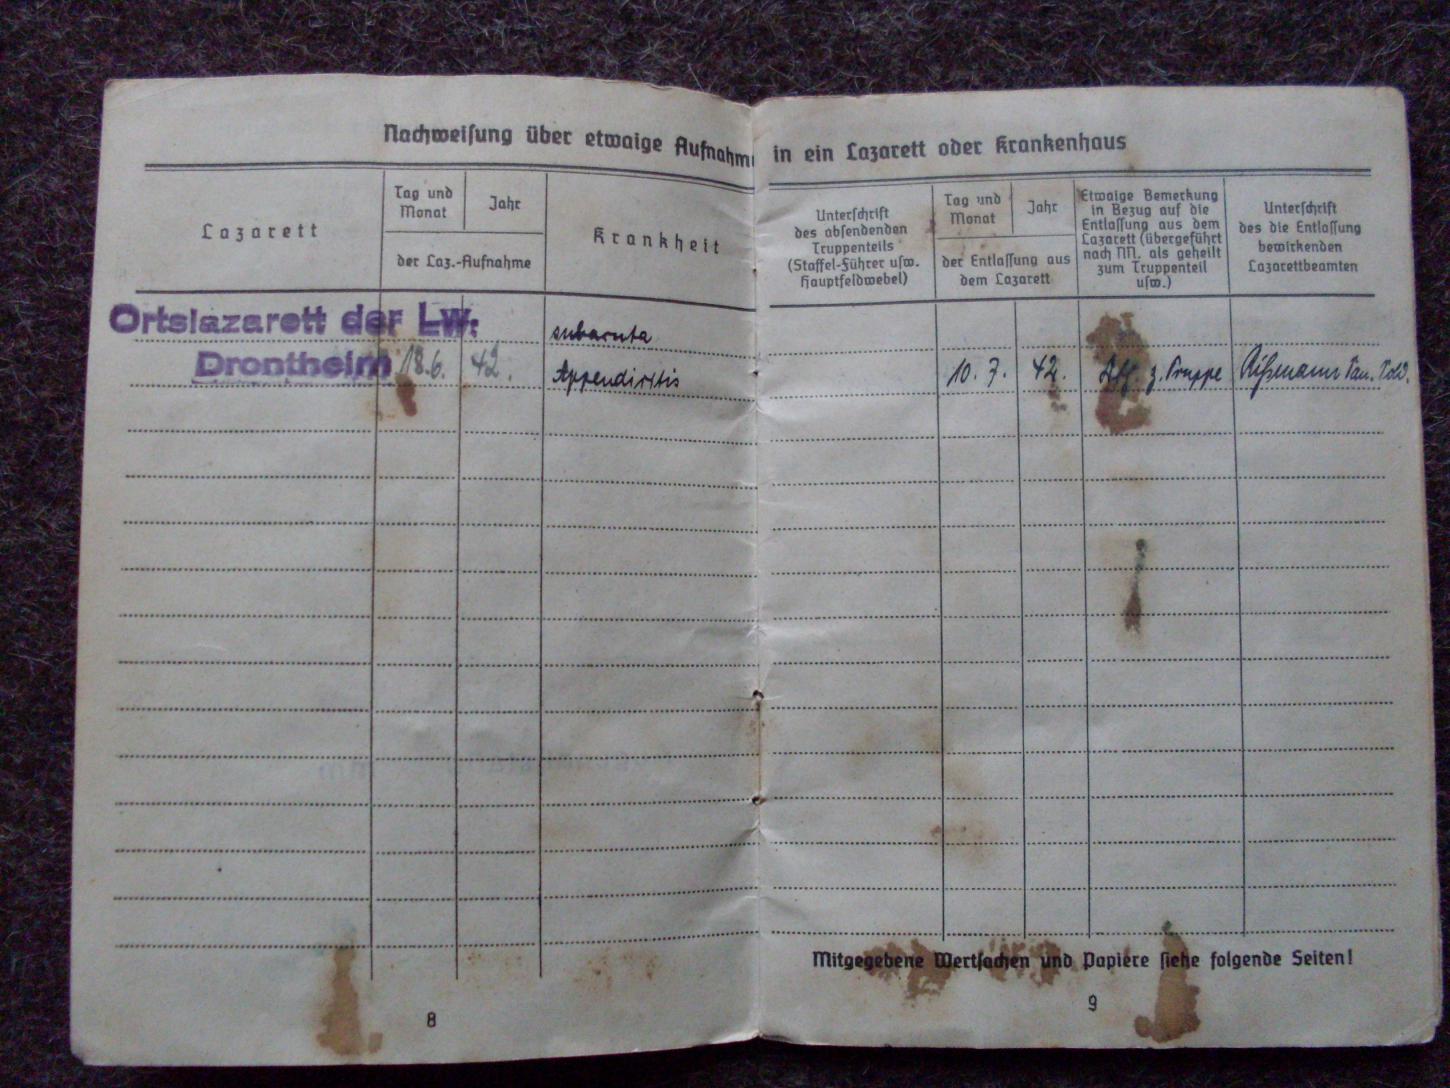 Nachweisung über etwaige Aufnahme in ein Lazarett oder Krankenhaus
Lazarett
Tag und
Monat
Jahr
der Laz.-Aufnahme
Krankheit
Unterschrift
des absendenden
Truppenteils
(Staffel-Führer usw.
Hauptfeldwebel)
Tag und
Monat
Jahr
der Entlassung aus
dem Lazarett
Etwaige Bemerkung
in Bezug auf die
Entlassung aus dem
Lazarett (übergeführt
nach NN. als geheilt
zum Truppenteil
usw.)
Unterschrift
des die Entlassung
bewirkenden
Lazarettbeamten
Ortslazarett der LW.
Drontheim
18.6.
42.
subacuta
Appendicitis
10. 7.
42.
z. Truppe
Mitgegebene Wertsachen und Papiere siehe folgende Seiten!
8
9